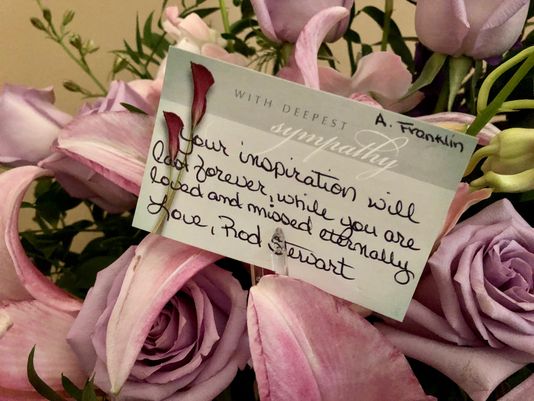 A. Franklin
WITH DEEPEST
sympathy
Your inspiration will
last forever, while you are
loved and missed eternally
Love, Rod Stewart